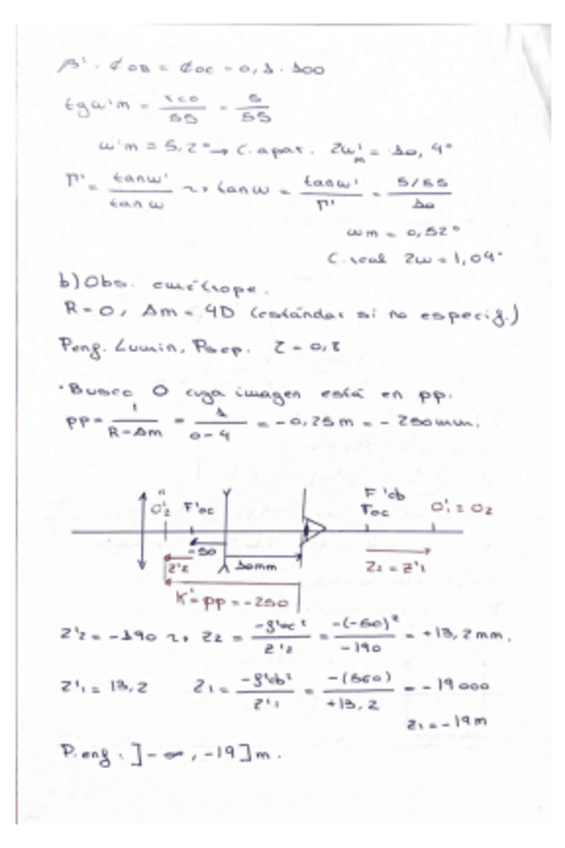 β' · ϕOB = ϕOC = 0,1 · 100
tg ω'm = ϕCO / 55 = 5 / 55
ω'm = 5,2° → C. apar. 2ω'm = 10,4°
Γ' = tan ω' / tan ω ⤳ tan ω = tan ω' / Γ' = 5/55 / 10
ωm = 0,52°
C. real 2ω = 1,04°
b) Obs. emétrope.
R = 0, Am = 4D (estándar si no especif.)
P eng. Lumin, Pacep. = 0,8
· Busco O cuya imagen está en pp.
pp = 1 / R-Am = 1 / 0-4 = -0,25 m = -250 mm.
O'2 F'oc F'cb Foc O'1 ≡ O2
-50 10mm
z'2 z2 = z'1
K' = pp = -250
z'2 = -190 ⤳ z2 = -f'oc² / z'2 = -(-50)² / -190 = +13,2 mm.
z'1 = 13,2 z1 = -f'cb² / z'1 = -(500) / +13,2 = -19000
z1 = -19 m
P. eng : ]-∞, -19] m.